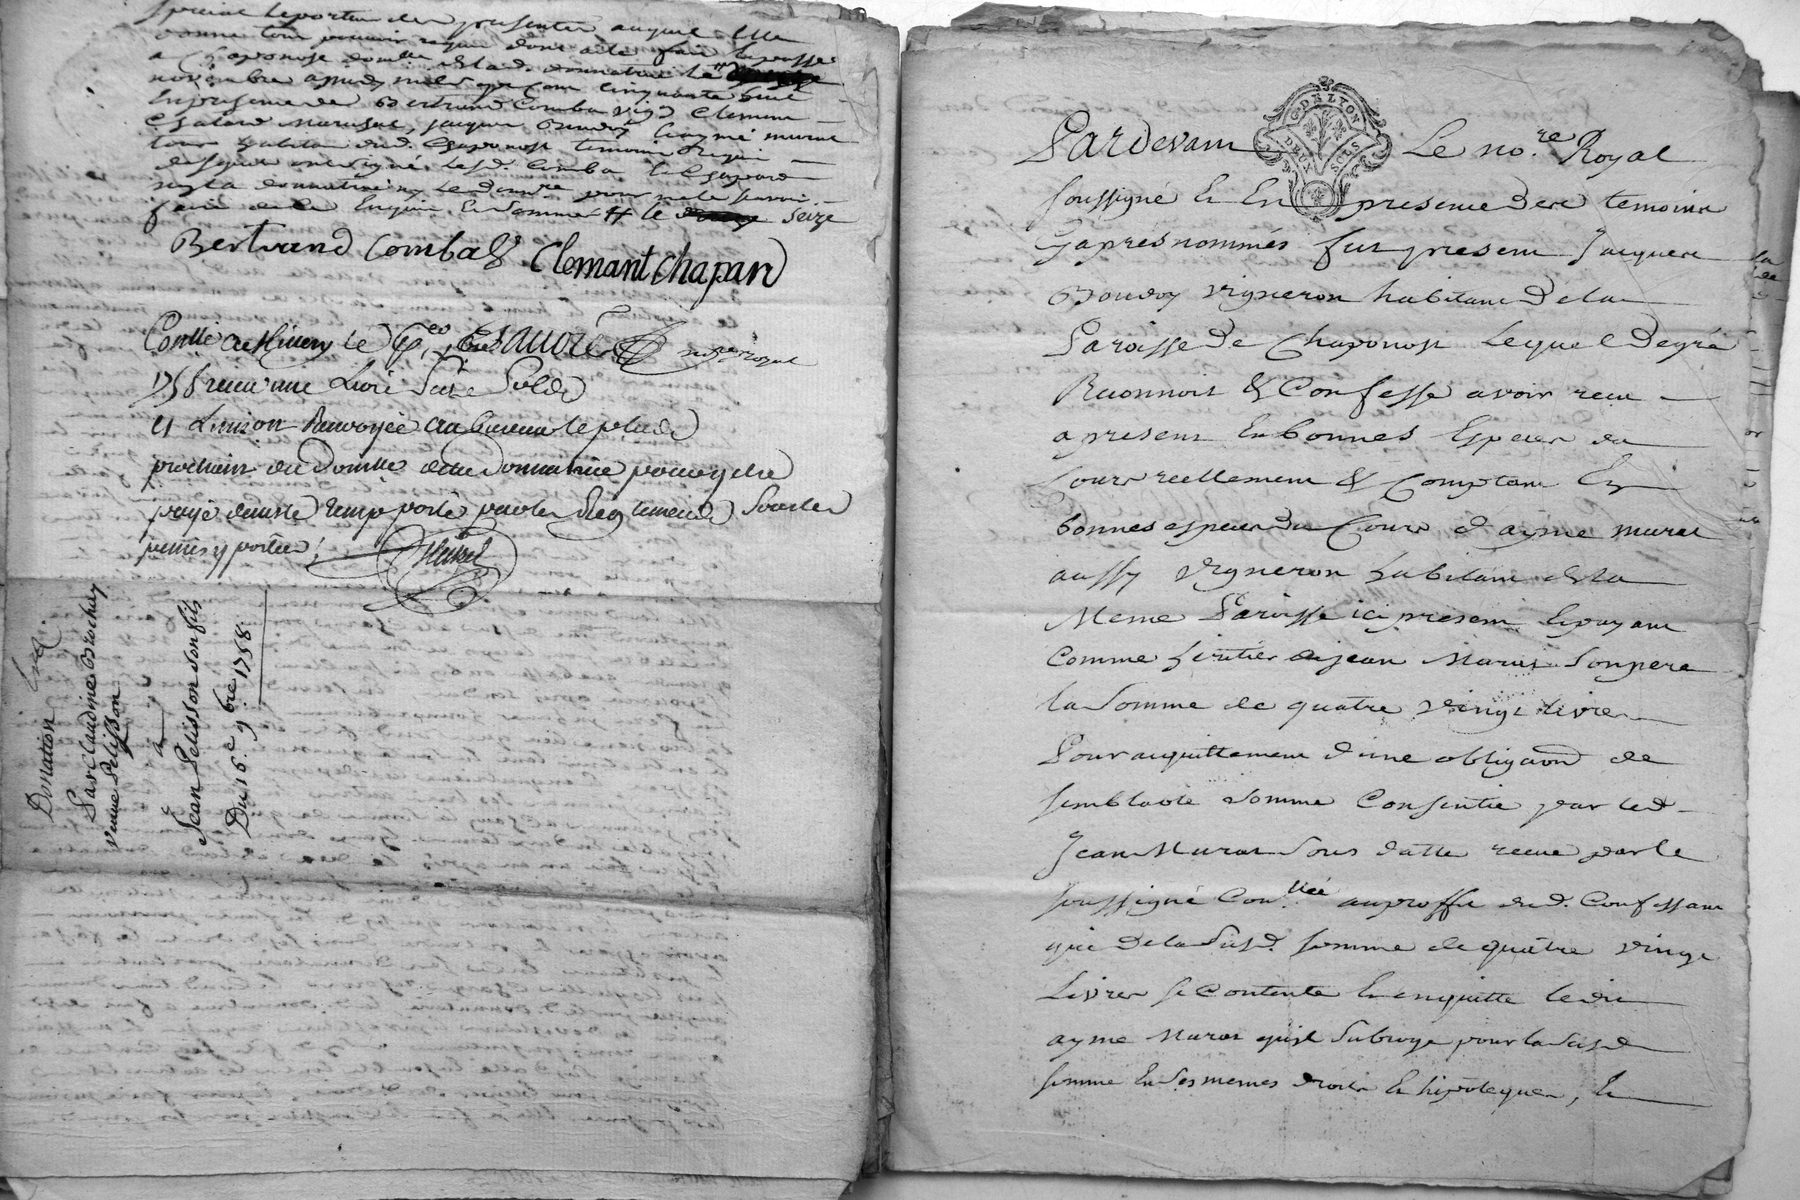 special le porteur des presentes auquel elle
donne tout pouvoir requis dont acte fait et passé
a Chaponost domlle de lad. donnatrice le
novembre apmidy mil sept cent cinquante huit
En presence de Bertrand Comba vig.d Clement
Chapard Marechal, jacques Bouvoy & aymé murat
tous habitans dud. Chaponost temoins requis
desquels ont signé lesd. Comba & Chapard
non la donnatrice ny le donatre pour ne le scavoir
faire de ce Enquis & Sommes ff le seize
Bertrand Comba Clemant chapard
Conllé a le
1758 reçu une Livre Seize Sols
et Linsion Renvoyée au bureau le plus
prochain du Domille de la Donnatrice pour y etre
payé dans le temps porté par les Reglements Sous les
peines y portées
Donation
Par Claudine Brochay
veuve Pelisson
a
Jean Pelisson son fils
Du 16.e 9.bre 1758.
Pardevant Le no.re Royal
G. DE LYON
DEUX SOLS
soussigné & En presence des temoins
Cy apres nommés fut present Jacques
Bouvoy vigneron habitant de la
Paroisse de Chaponost lequel de gré
Reconnoit & Confesse avoir reçu
a present En bonnes Especes du
Cours reellement & Comptant En
bonnes especes du Cours d'ayme murat
aussy vigneron habitant de la
Meme Paroisse ici present & payant
Comme heritier de jean Murat Son pere
la Somme de quatre vingt livres
Pour acquittement d'une obligaon de
semblable Somme Consentie par led.
Jean Murat Sous datte recue par le
soussigné Con.llée au proffit dud. Confessant
qui de la Susd. somme de quatre vingt
Livres se Contente & en quitte ledit
ayme Murat qu'il Subroge pour la Susd.
somme En Ses memes droits & hipoteques, &